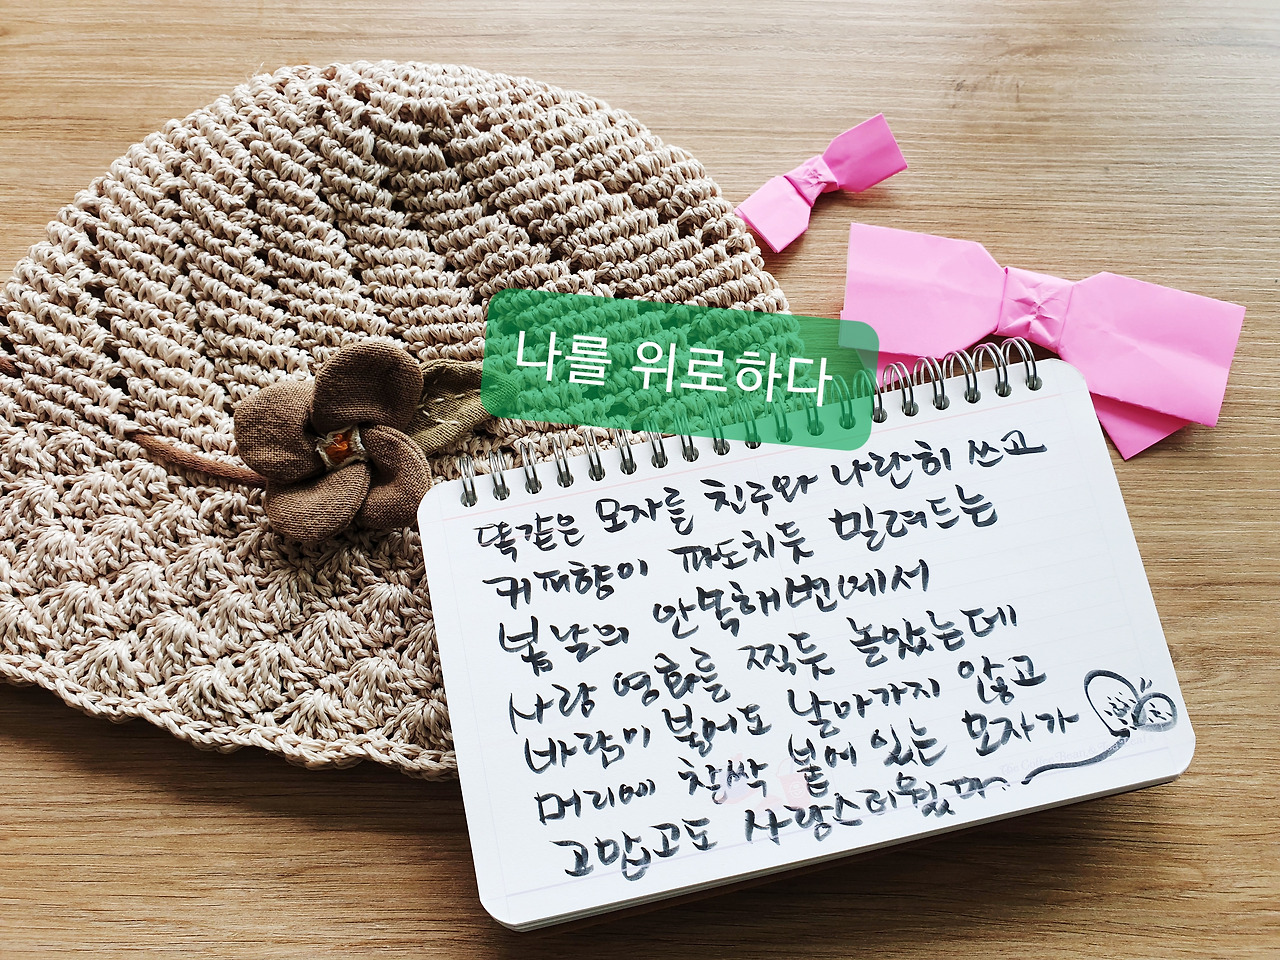 나를 위로하다
똑같은 모자를 친구와 나란히 쓰고
커피향이 파도치듯 밀려드는
봄날의 안목해변에서
사랑 영화를 찍듯 놀았는데
바람이 불어도 날아가지 않고
머리에 찰싹 붙어 있는 모자가
고맙고도 사랑스러웠다